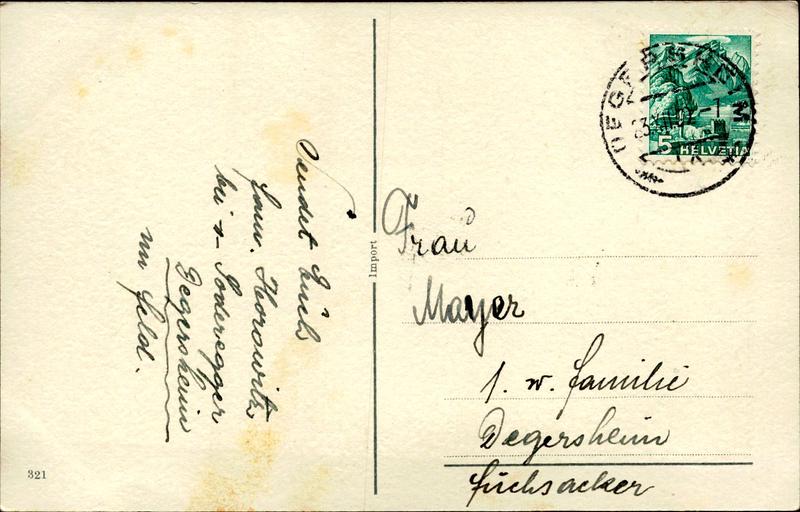 Sendet Euch
fam. Horowitz
bei Soderegger
Degersheim
im feld.
321
Import
DEGERSHEIM
5 HELVETIA
Frau
Mayer
1. w. familie
Degersheim
füchsacker